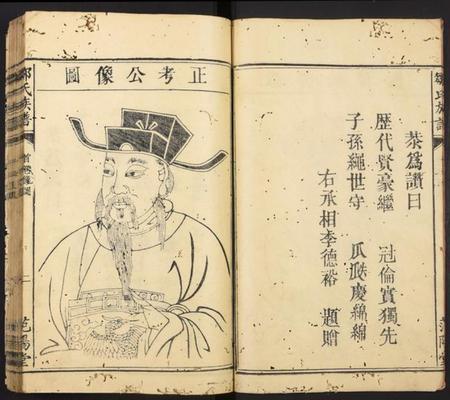 鄒氏族譜
恭為讚曰
歷代賢豪繼 冠倫實獨先
子孫繩世守 瓜瓞慶綿綿
右承相李德裕 題贈
范陽堂
正考公像圖
鄒氏族譜
首卷
二
范陽堂